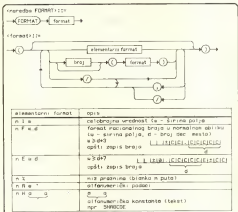 <naredba FORMAT>::=
FORMAT format
<format>::=
( elementarni format )
broj ( format )
/
,
elementarni format opis
n I w celobrojna vrednost (w - širina polja
n F w.d format racionalnog broja u normalnom obliku
(w - širina polja, d - broj dec. mesta)
w≥d+3
opšti zapis broja
d
n E w.d w≥d+7
opšti zapis broja
d
n X niz praznina (blanko n puta)
n A w alfanumerički podaci
n H
alfanumerička konstanta (tekst)
npr. 5HABCDE